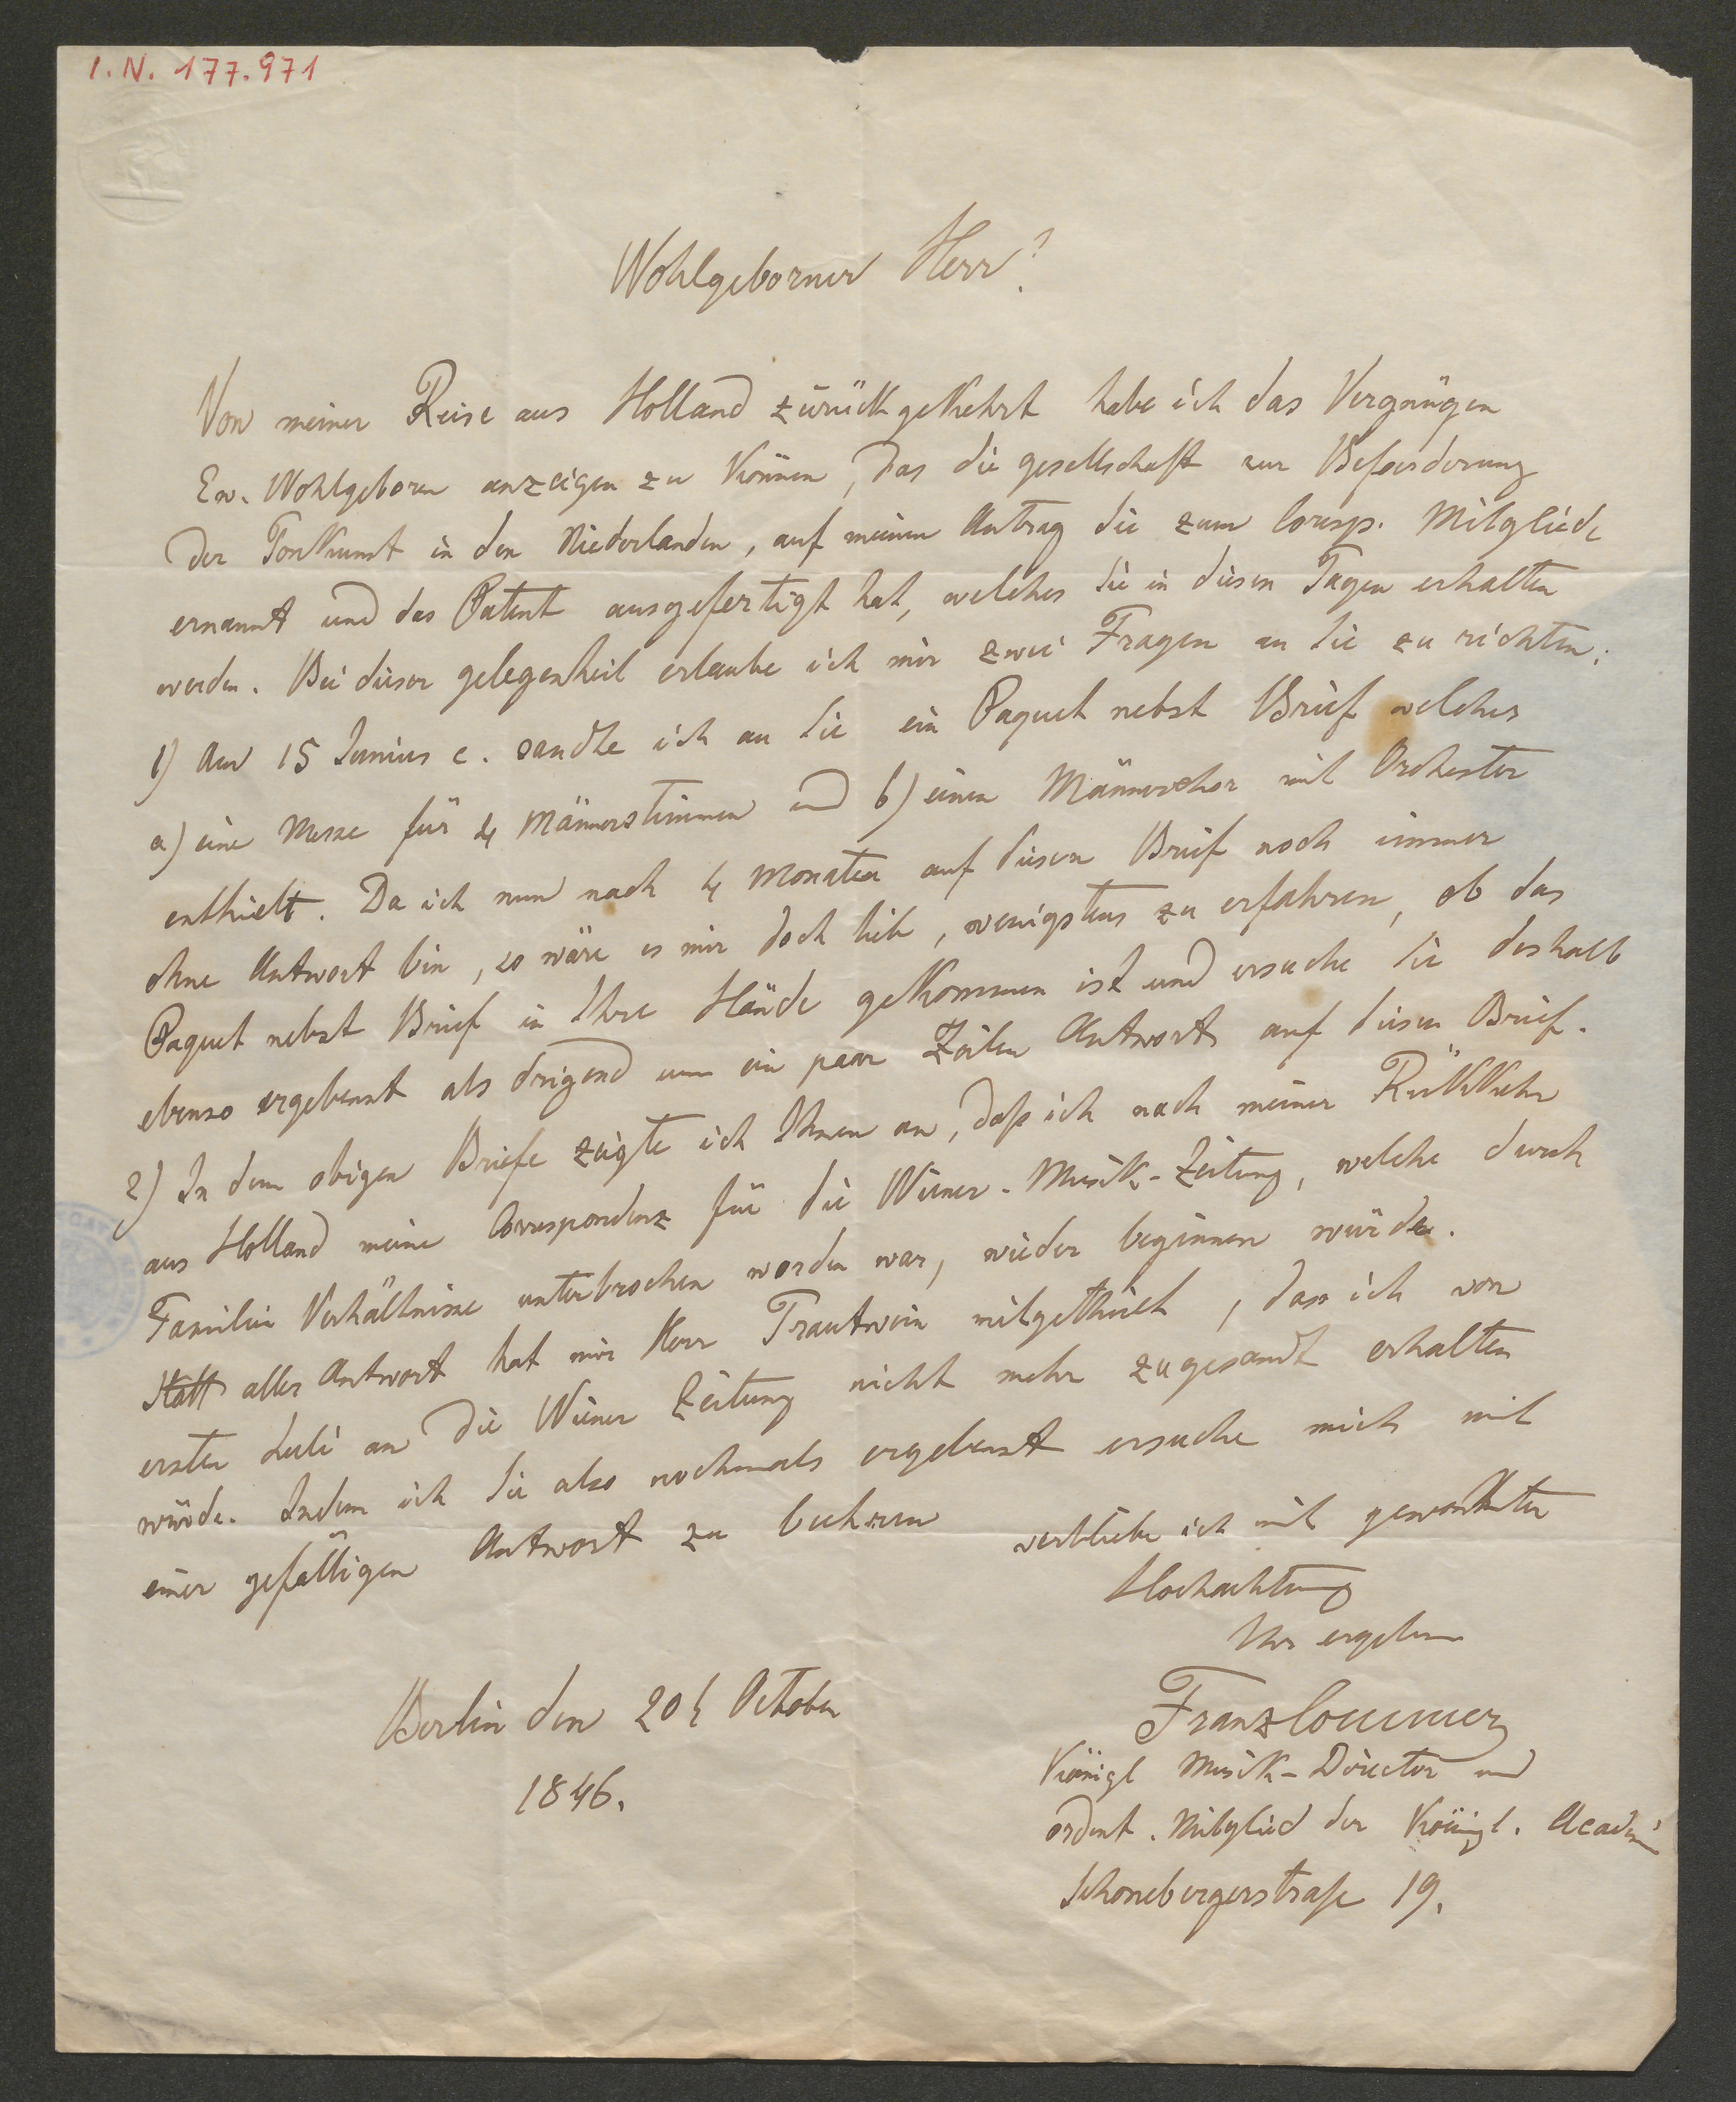 I.N. 177.971
Wohlgeborner Herr!
Von meiner Reise aus Holland zurückgekehrt habe ich das Vergnügen
Ew. Wohlgeboren anzeigen zu können, das die gesellschaft zur Beförderung
der Tonkunst in den Niederlanden, auf meinen Antrag Sie zum Corresp. Mitgliede
ernannt und das Patent ausgefertigt hat, welches Sie in diesen Tagen erhalten
werden. Bei dieser gelegenheit erlaube ich mir zwei Fragen an Sie zu richten:
1) Am 15 Junius c. sandte ich an Sie ein Paquet nebst Brief welches
a) eine Messe für 4 Männerstimmen und b) einen Männerchor mit Orchester
enthielt. Da ich nun nach 4 Monaten auf diesen Brief noch immer
ohne Antwort bin, so wäre es mir doch lieb, wenigstens zu erfahren, ob das
Paquet nebst Brief in Ihre Hände gekommen ist und ersuche Sie deshalb
ebenso ergebenst als drigend um ein paar Zeilen Antwort auf diesen Brief.
2) In dem obigen Briefe zeigte ich Ihnen an, daß ich nach meiner Rükkkehr
aus Holland meine Correspondenz für die Wiener-Musik-Zeitung, welche durch
Familien Verhältnisse unterbrochen worden war, wieder beginnen würde.
Statt aller Antwort hat mir Herr Trautwein mitgetheilt, dass ich vom
ersten Juli an die Wiener Zeitung nicht mehr zugesandt erhalten
würde. Indem ich Sie also nochmals ergebenst ersuche mich mit
einer gefälligen Antwort zu beehren
verbliebe ich mit gewohnter
Hochachtung
Ihr ergebner
Berlin den 20t October
1846.
Franz Commer
Königl Musik-Director und
ordent. Mitglied der Königl. Academie
Schonebergerstraße 19.